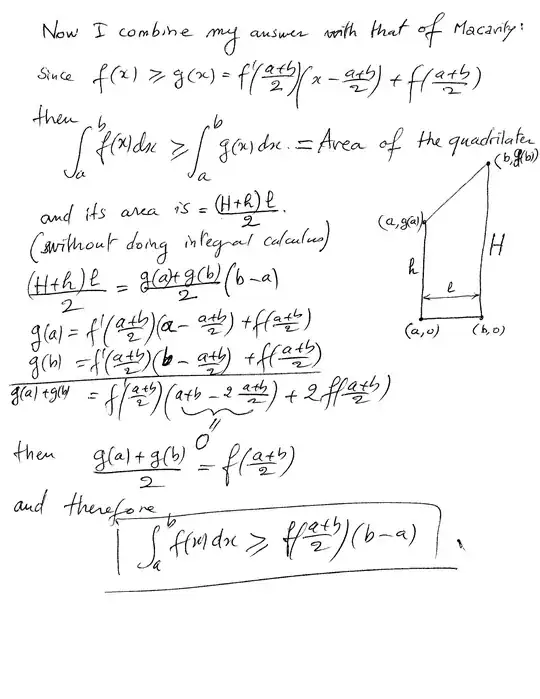 Now I combine my answer with that of Macavity:
Since f(x) ⩾ g(x) = f'(a+b/2)(x − a+b/2) + f(a+b/2)
then
∫_a^b f(x)dx ⩾ ∫_a^b g(x)dx. = Area of the quadrilater
and its area is = (H+h)ℓ/2.
(without doing integral calculus)
(H+h)ℓ/2 = g(a)+g(b)/2 (b−a)
g(a) = f'(a+b/2)(a − a+b/2) + f(a+b/2)
g(b) = f'(a+b/2)(b − a+b/2) + f(a+b/2)
g(a)+g(b) = f'(a+b/2)(a+b − 2 a+b/2) + 2f(a+b/2)
=
0
then g(a)+g(b)/2 = f(a+b/2)
and therefore
∫_a^b f(x)dx ⩾ f(a+b/2)(b−a).
(b,g(b))
(a,g(a))
h
ℓ
H
(a,0)
(b,0)